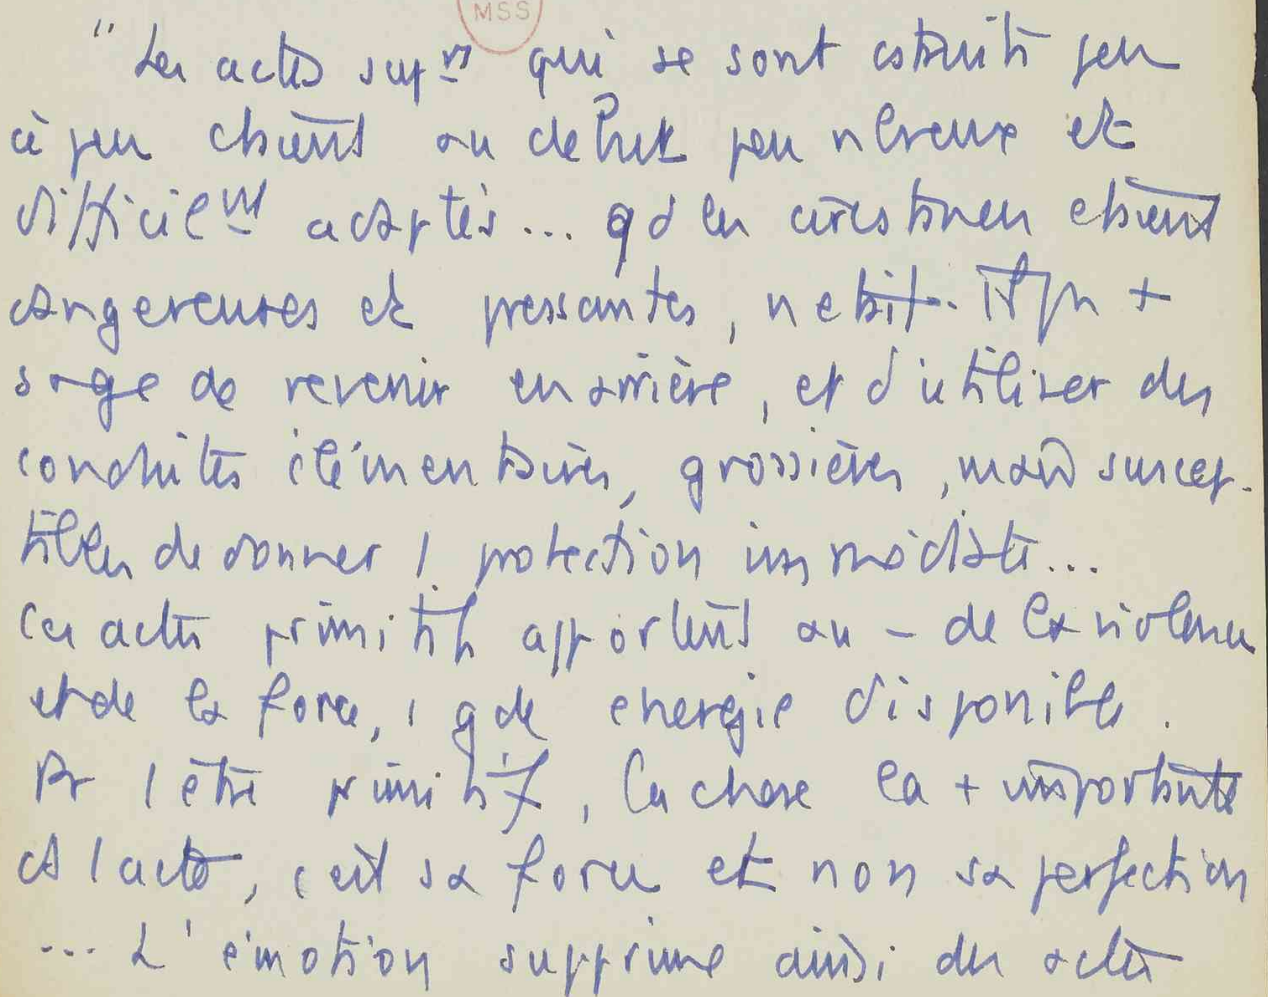 MSS
" Les actes suprs qui se sont construits peu
à peu étaient au debut peu nbreux et
difficilemt adaptés... qd les circstances étaient
dangereuses et pressantes, n'était-il pas +
sage de revenir en arrière, et d'utiliser des
conduites élémentaires, grossières, mais suscep-
tibles de donner 1 protection immédiate...
Ces actes primitifs apportent au - de la violence
et de la force, 1 gde energie disponible.
Pr l'être primitif, la chose la + importante
ds l'acte, c'est sa force et non sa perfection
... L'émotion supprime ainsi des actes